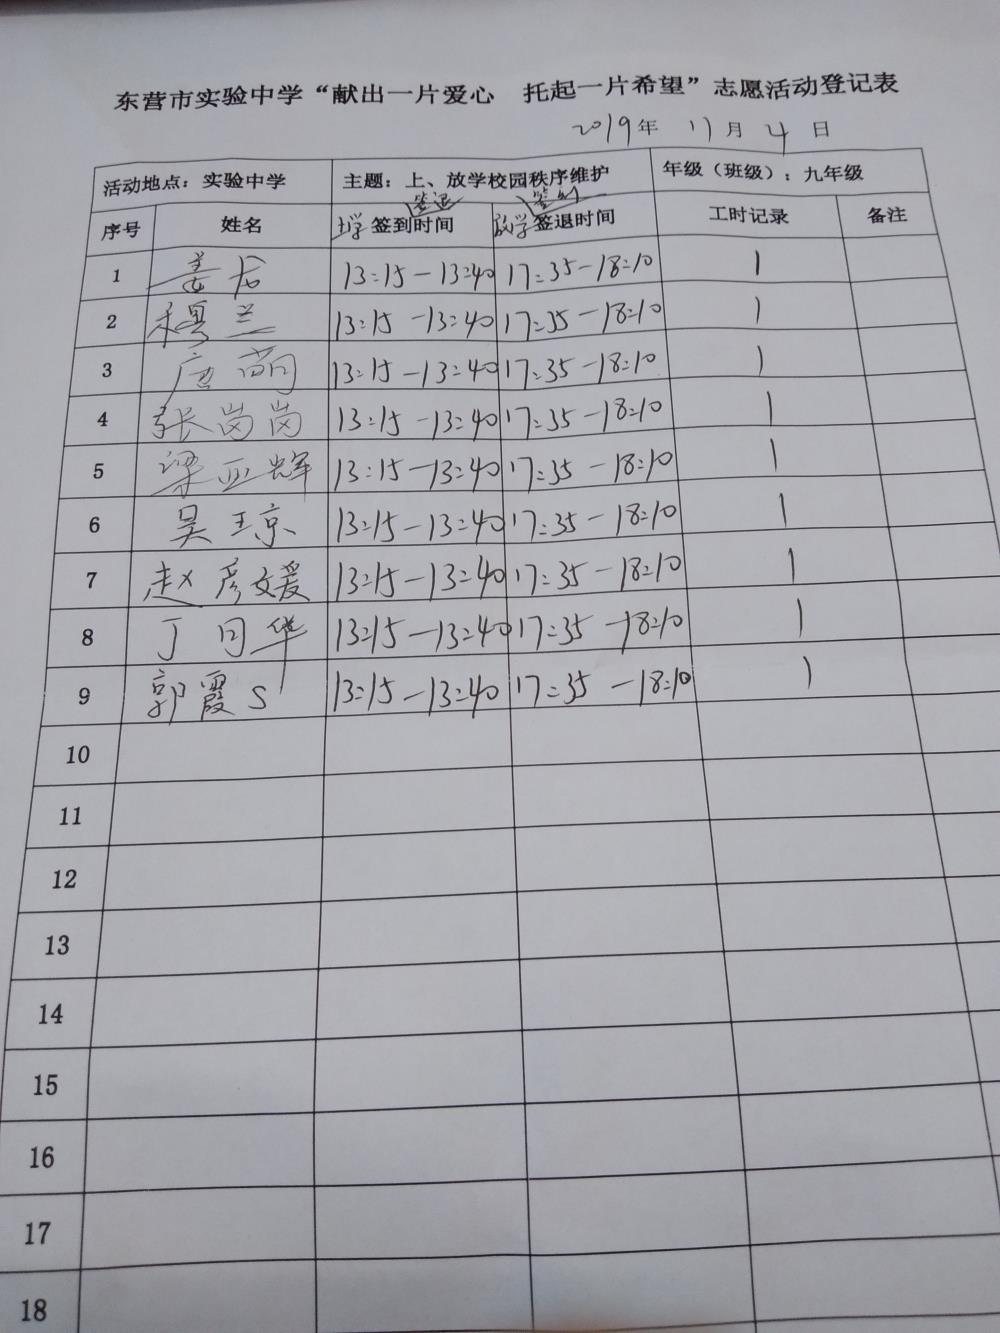 东营市实验中学“献出一片爱心 托起一片希望”志愿活动登记表
2019年 11月 4 日
活动地点：实验中学 主题：上、放学校园秩序维护 年级（班级）：九年级
签退 签到
序号 姓名 上学签到时间 放学签退时间 工时记录 备注
1 姜龙 13:15-13:40 17:35-18:10 1
2 穆兰 13:15-13:40 17:35-18:10 1
3 唐萌 13:15-13:40 17:35-18:10 1
4 张岗岗 13:15-13:40 17:35-18:10 1
5 梁亚辉 13:15-13:40 17:35-18:10 1
6 吴琼 13:15-13:40 17:35-18:10 1
7 赵彦媛 13:15-13:40 17:35-18:10 1
8 丁同华 13:15-13:40 17:35-18:10 1
9 郭霞S 13:15-13:40 17:35-18:10 1
10
11
12
13
14
15
16
17
18